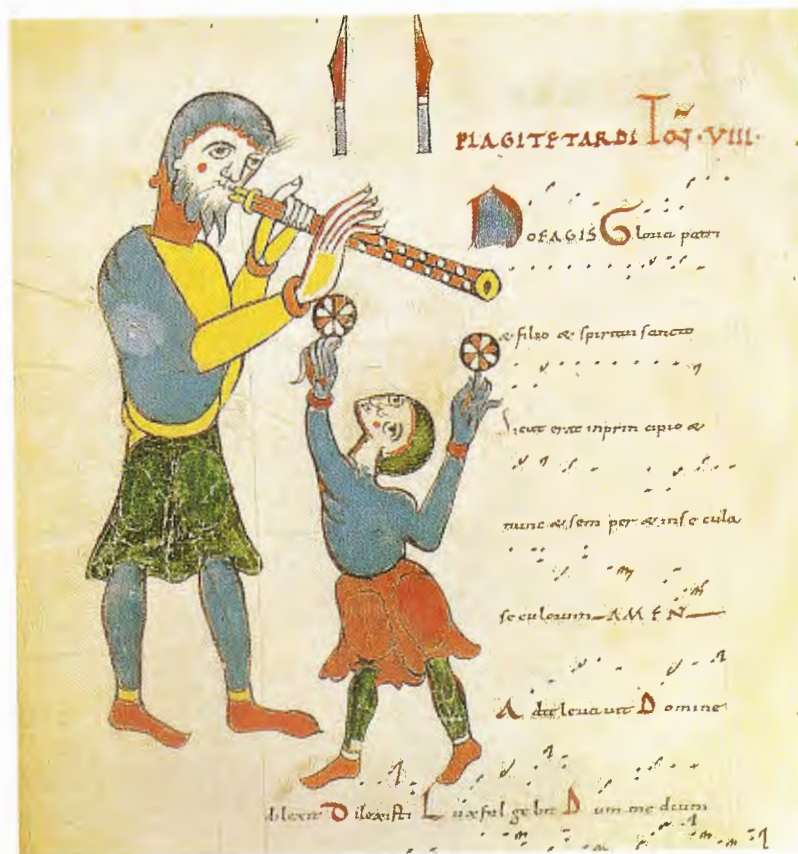 PLAGITETARDI Toɴ·VIII·
NOEAGIS Gloria patri
& filio & spiritui sancto
Sicut erat inprin cipio &
nunc & sem per & inse cula
seculorum AMEN
Ad te levavit Domine
dilexit Dilexisti Lux ful ge bit Dum me dium